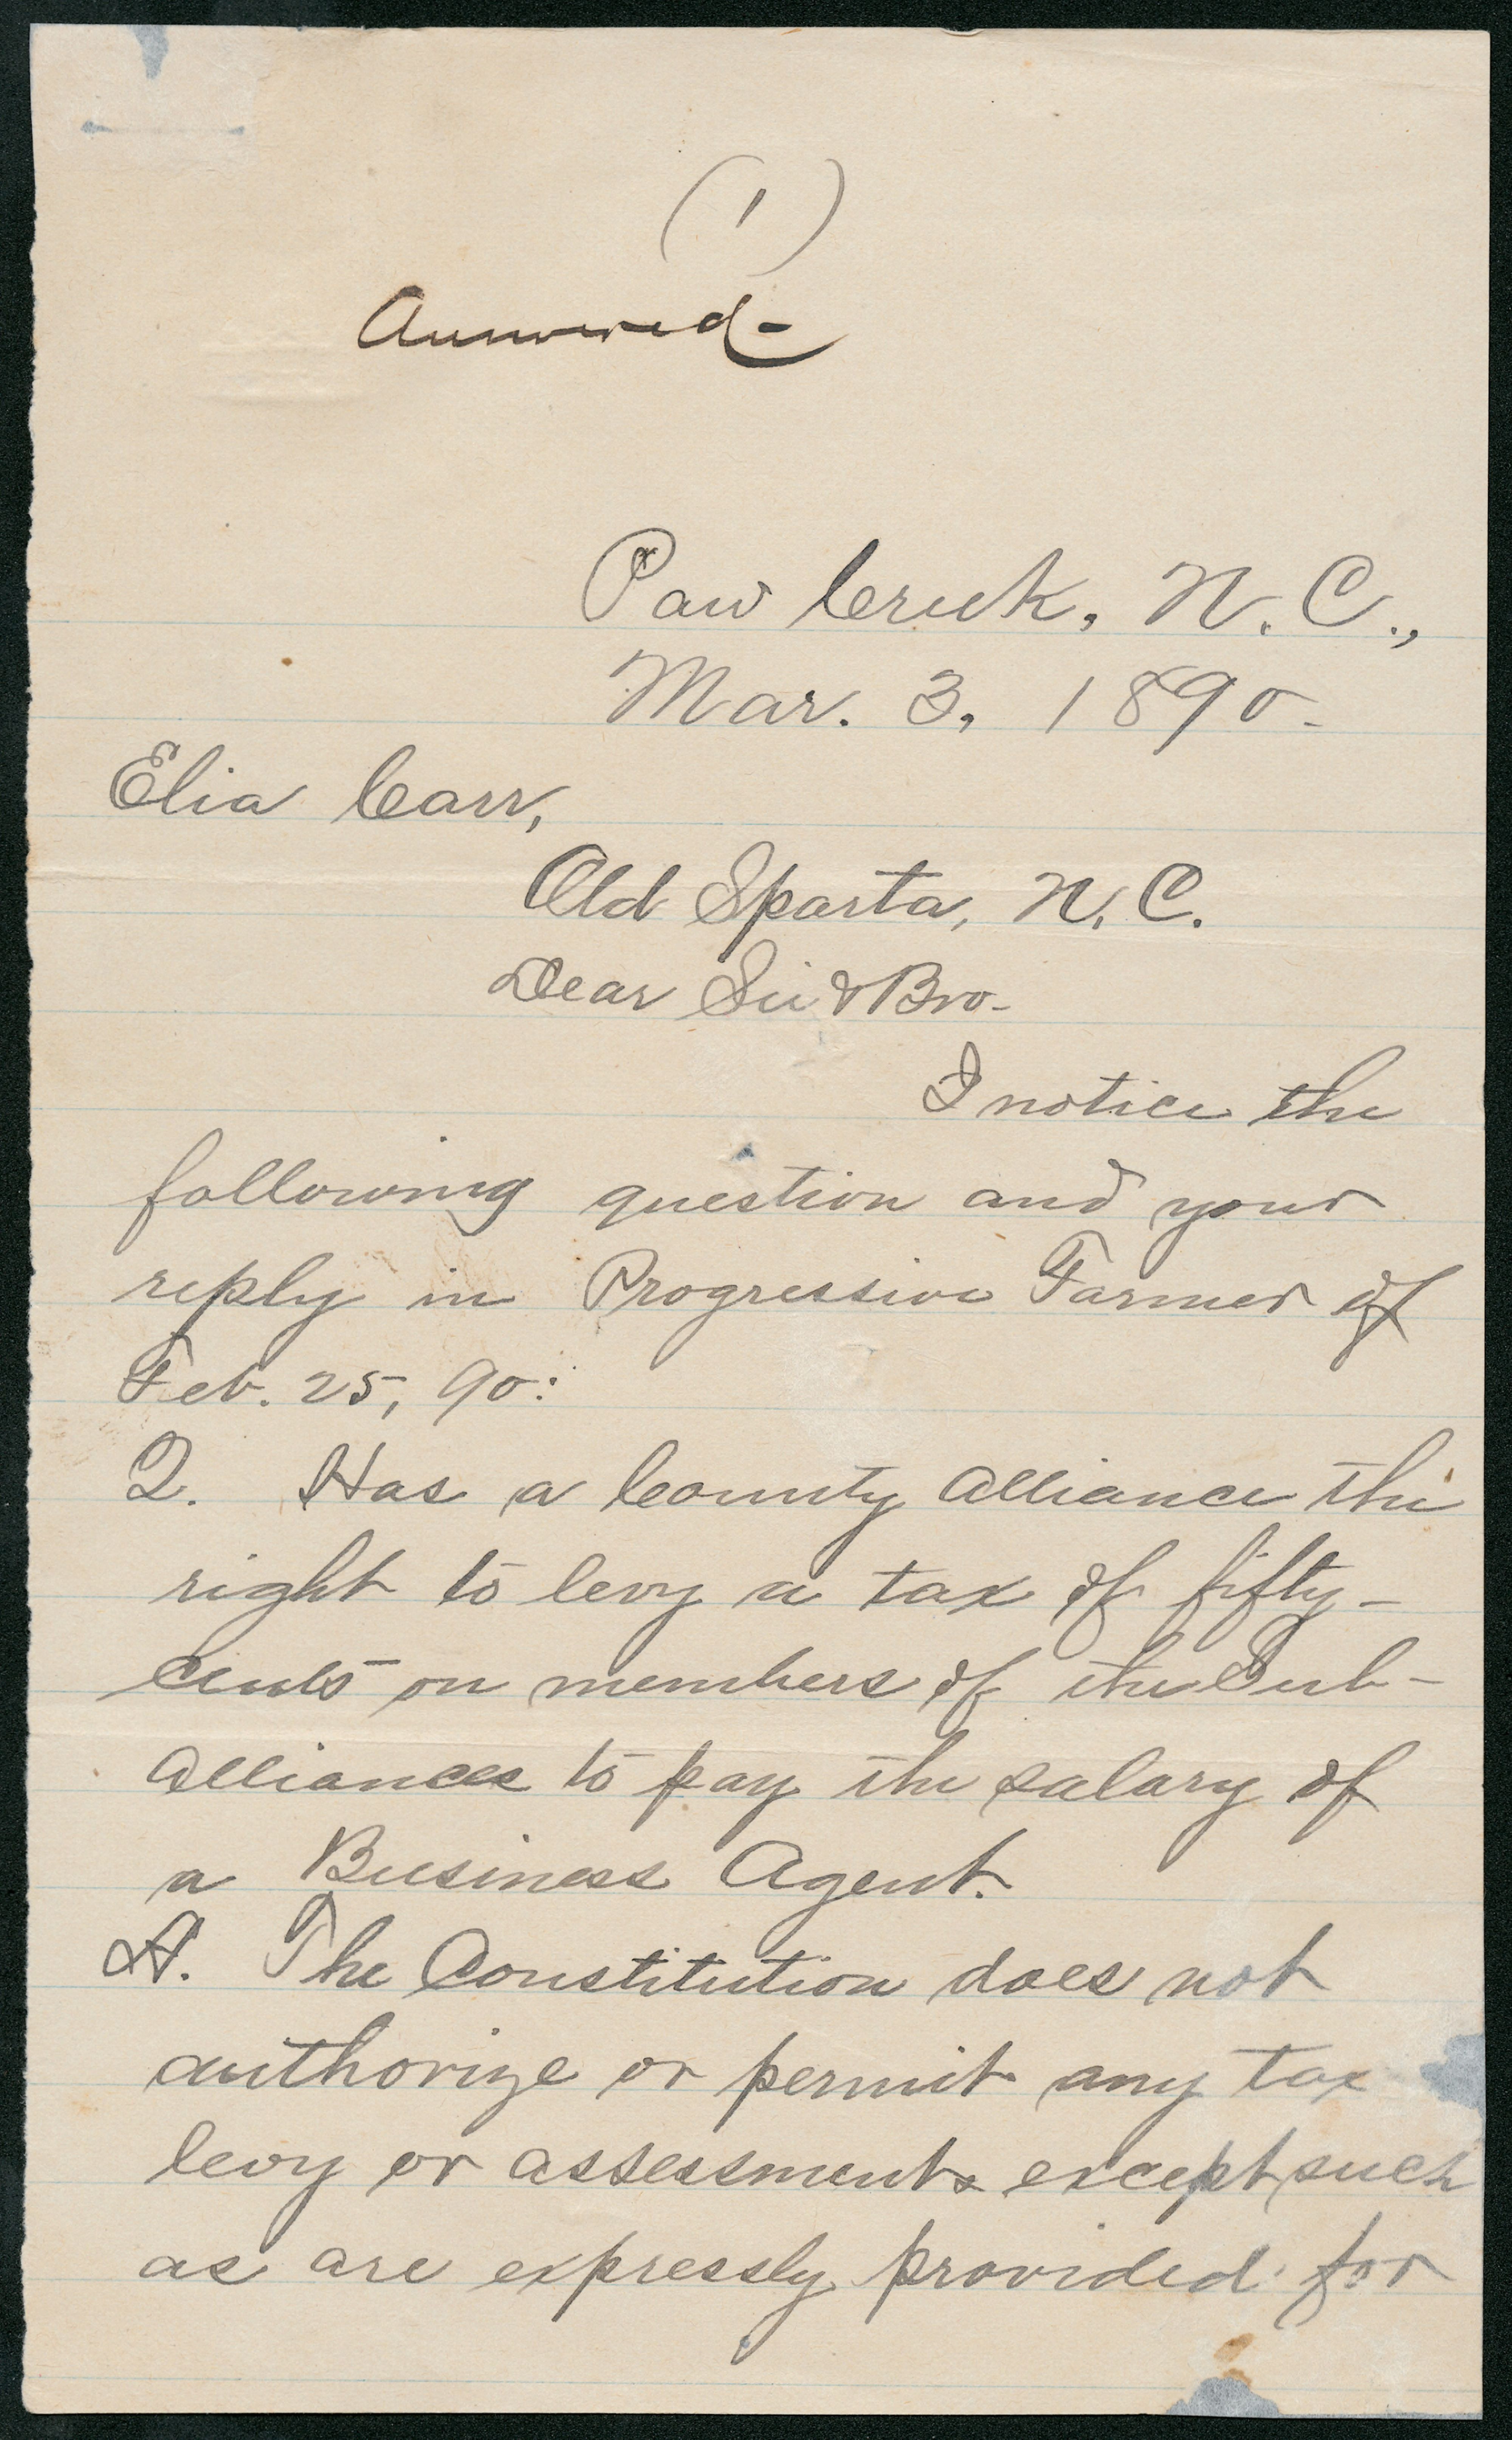 (1)
Answered-
Paw Creek, N. C.,
Mar. 3, 1890.
Elia Carr,
Old Sparta, N. C.
Dear Sir & Bro-
I notice the
following question and your
reply in Progressive Farmer of
Feb. 25, 90:
Q. Has a County Alliance the
right to levy a tax of fifty-
cents on members of the Sub-
Alliances to pay the salary of
a Business Agent.
A. The Constitution does not
authorize or permit any tax
levy or assessments except such
as are expressly provided for